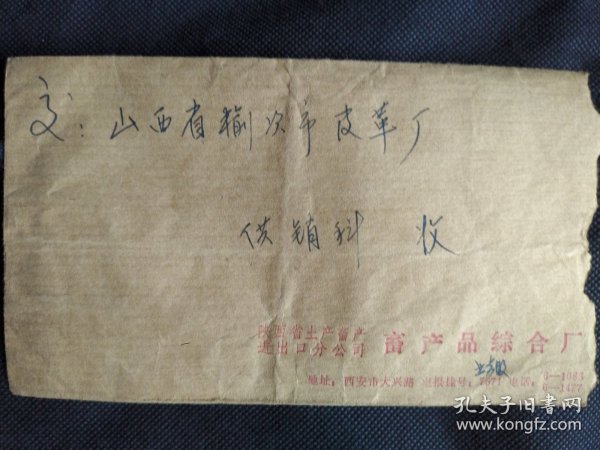 交：山西省榆次市皮革厂
供销科 收
陕西省土产畜产
进出口分公司 畜产品综合厂
地址：西安市大兴路 电报挂号：7671 电话：
孔夫子旧书网
www.kongfz.com